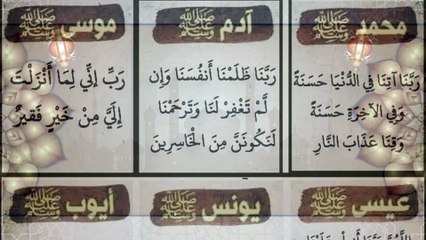 محمد صلى الله عليه وسلم
رَبَّنَا آتِنَا فِي الدُّنْيَا حَسَنَةً
وَفِي الآخِرَةِ حَسَنَةً
وَقِنَا عَذَابَ النَّارِ
آدم صلى الله عليه وسلم
رَبَّنَا ظَلَمْنَا أَنفُسَنَا وَإِن
لَّمْ تَغْفِرْ لَنَا وَتَرْحَمْنَا
لَنَكُونَنَّ مِنَ الْخَاسِرِينَ
موسى صلى الله عليه وسلم
رَبِّ إِنِّي لِمَا أَنْزَلْتَ
إِلَيَّ مِنْ خَيْرٍ فَقِيرٌ
عيسى صلى الله عليه وسلم
يونس صلى الله عليه وسلم
أيوب صلى الله عليه وسلم